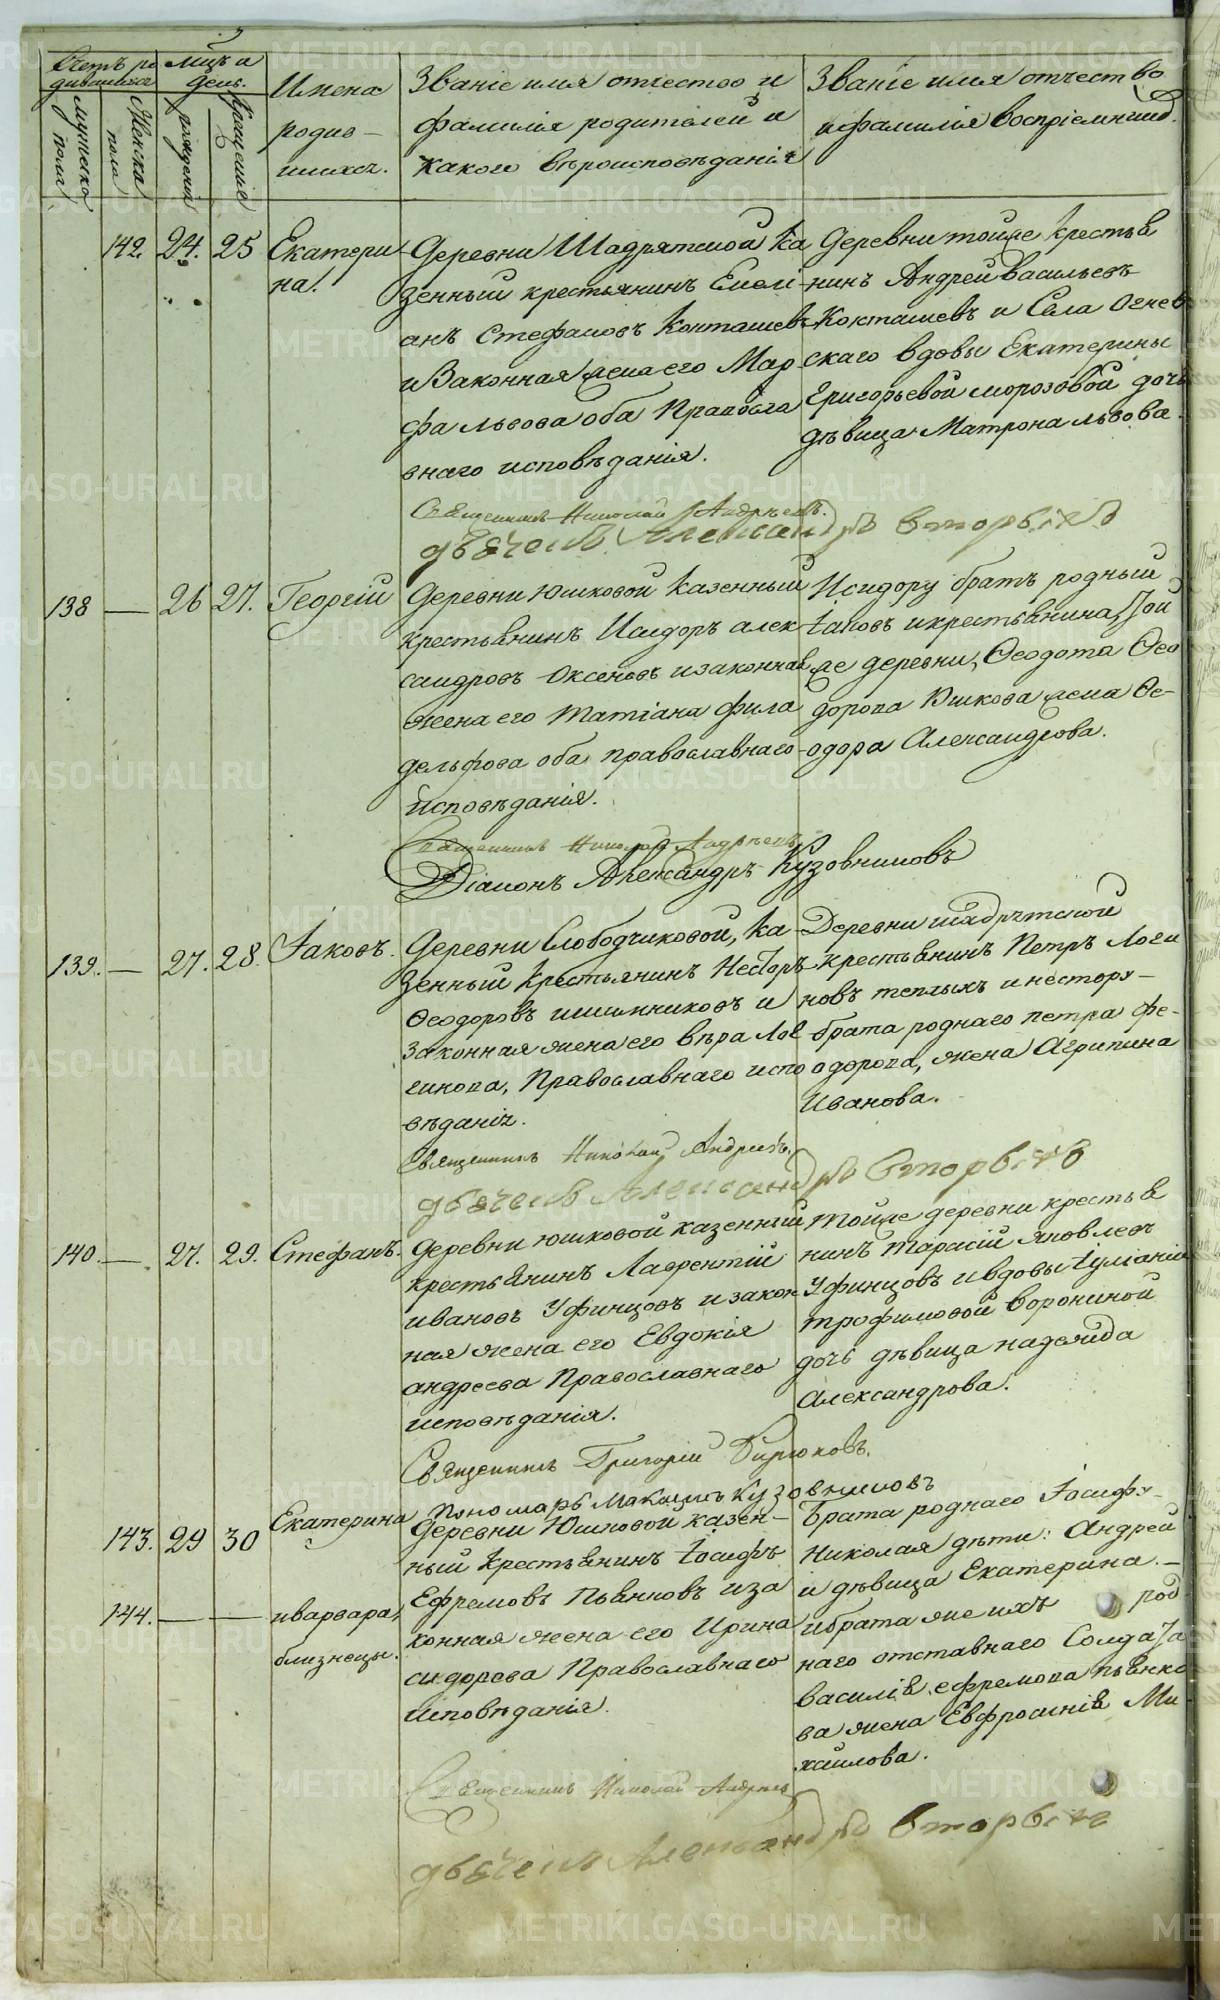 Счетъ ро
дившихся
Мѣсяцъ и
день.
Мужеска
пола
Женска
пола
рожденія
крещенія
Имена
родив–
шихся.
Званіе имя отчество и
фамилія родителей и
какого вѣроисповѣданія
Званіе имя отчество
и фамилія воспріемник.
142. 24. 25 Екатери
на.
Деревни Шадрятской ка
зенный крестьянинъ Емелі
анъ Стефановъ Кокташевъ
и Законная жена его Мар
фа Львова оба Правосла
внаго исповѣданія.
Деревни тойже крестья
нинъ Андрей Васильевъ
Кокташевъ и Села Огнев
скаго вдовы Екатерины
Григорьевой морозовой дочь
дѣвица Матрона Львова.
Священникъ Николай Андреевъ.
дьячекъ Александръ Вторыхъ
138 — 26 27. Георгій
Деревни Юшковой казенный
крестьянинъ Исидоръ алек
сандровъ Оксеновъ и законная
жена его Татіана Фила
дельфова оба православнаго
исповѣданія.
Исидору братъ родный
Іаковъ и крестьянина Той
же деревни, Ѳеодота Ѳео
дорова Юшкова жена Ѳе–
одора Александрова.
Священникъ Николай Андреевъ
Діаконъ Александръ Кузовниковъ
139. — 27. 28. Іаковъ.
Деревни Слободчиковой, ка
зенный крестьянинъ Несторъ
Ѳеодоровъ шишкинковъ и
законная жена его вѣра Лог
гинова, Православнаго испо
вѣданія.
Деревни шадрятской
крестьянинъ Петръ Логи
новъ теплыхъ и нестору–
брата роднаго петра фе–
одорова, жена Агрипина
Иванова.
Священникъ Николай Андреевъ.
дьячекъ Александръ Вторыхъ
140. — 27. 29. Стефанъ.
Деревни юшковой казенный
крестьянинъ Лаврентій
ивановъ Уфинцовъ и закон
ная жена его Евдокія
андреева Православнаго
исповѣданія.
тойже деревни крестья
нинъ Тарасій яковлевъ
Уфинцовъ и вдовы Іуліаніи
трофимовой ворониной
дочь дѣвица надежда
Александрова.
Священникъ Григорій Бирюковъ.
Пономарь Максимъ Кузовниковъ
143. 29 30 Екатерина
144. — — и варвара,
близнецы.
Деревни Юшковой казен–
ный крестьянинъ Іосифъ
Ефремовъ Пьянковъ и за
конная жена его Ирина
сидорова Православнаго
исповѣданія.
Брата роднаго Іосифу–
Николая дѣти: Андрей
и дѣвица Екатерина.–
и брата же ихъ род
наго отставнаго Солдата
василія ефремова пьянко
ва жена Евфросинія Ми
хаилова.
Священникъ Николай Андреевъ
дьячекъ Александръ Вторыхъ